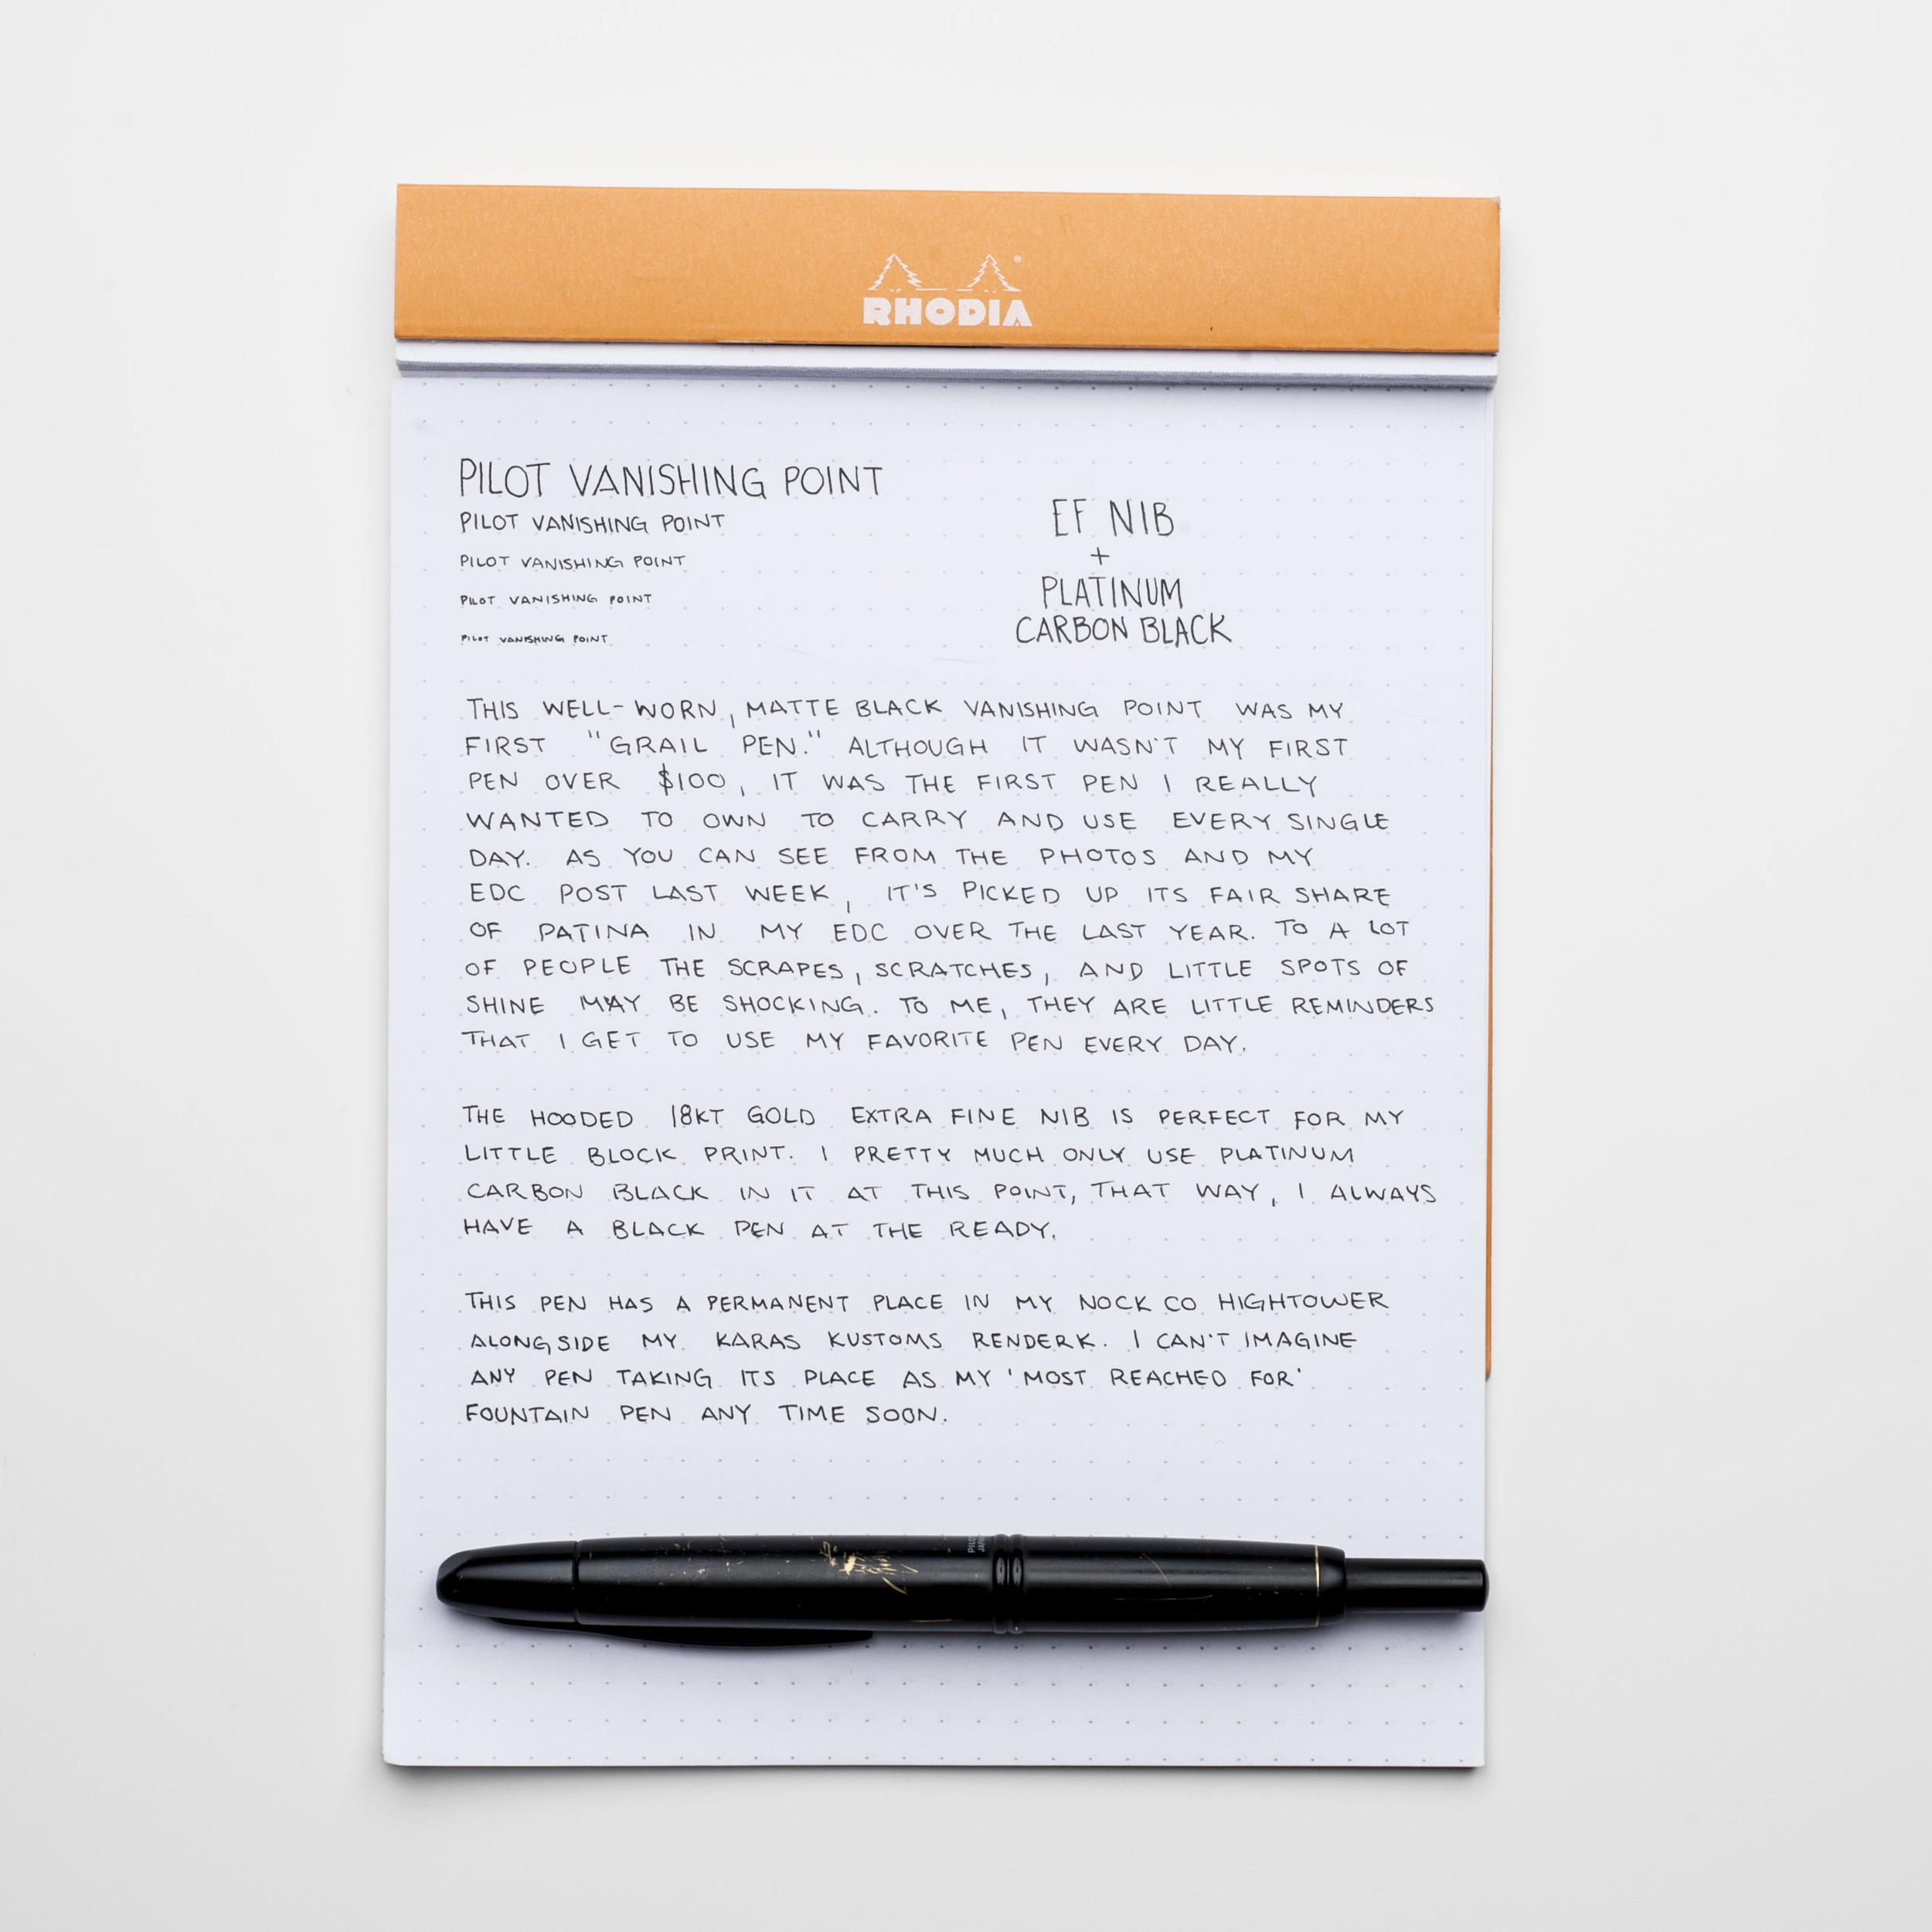 RHODIA
PILOT VANISHING POINT
PILOT VANISHING POINT
PILOT VANISHING POINT
PILOT VANISHING POINT
PILOT VANISHING POINT
EF NIB
+
PLATINUM
CARBON BLACK
THIS WELL-WORN, MATTE BLACK VANISHING POINT WAS MY
FIRST "GRAIL PEN." ALTHOUGH IT WASN'T MY FIRST
PEN OVER $100, IT WAS THE FIRST PEN I REALLY
WANTED TO OWN TO CARRY AND USE EVERY SINGLE
DAY. AS YOU CAN SEE FROM THE PHOTOS AND MY
EDC POST LAST WEEK, IT'S PICKED UP ITS FAIR SHARE
OF PATINA IN MY EDC OVER THE LAST YEAR. TO A LOT
OF PEOPLE THE SCRAPES, SCRATCHES, AND LITTLE SPOTS OF
SHINE MAY BE SHOCKING. TO ME, THEY ARE LITTLE REMINDERS
THAT I GET TO USE MY FAVORITE PEN EVERY DAY.
THE HOODED 18KT GOLD EXTRA FINE NIB IS PERFECT FOR MY
LITTLE BLOCK PRINT. I PRETTY MUCH ONLY USE PLATINUM
CARBON BLACK IN IT AT THIS POINT, THAT WAY, I ALWAYS
HAVE A BLACK PEN AT THE READY.
THIS PEN HAS A PERMANENT PLACE IN MY NOCK CO HIGHTOWER
ALONGSIDE MY KARAS KUSTOMS RENDERK. I CAN'T IMAGINE
ANY PEN TAKING ITS PLACE AS MY 'MOST REACHED FOR'
FOUNTAIN PEN ANY TIME SOON.